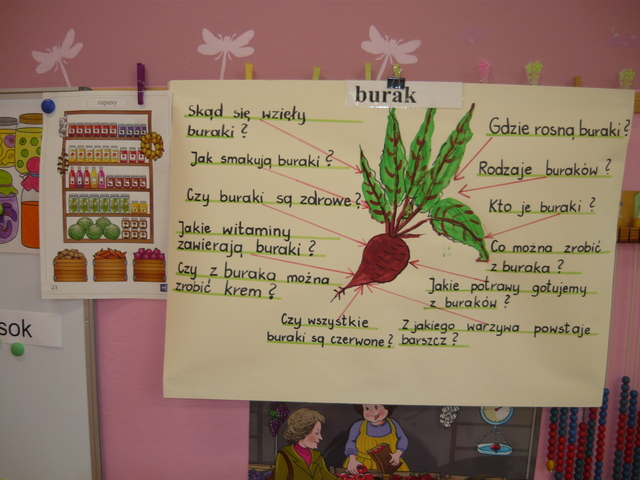 zapasy
burak
Skąd się wzięły
buraki?
Jak smakują buraki?
Czy buraki są zdrowe?
Jakie witaminy
zawierają buraki?
Czy z buraka można
zrobić krem?
Czy wszystkie
buraki są czerwone?
Gdzie rosną buraki?
Rodzaje buraków?
Kto je buraki?
Co można zrobić
z buraka?
Jakie potrawy gotujemy
z buraków?
Z jakiego warzywa powstaje
barszcz?
sok